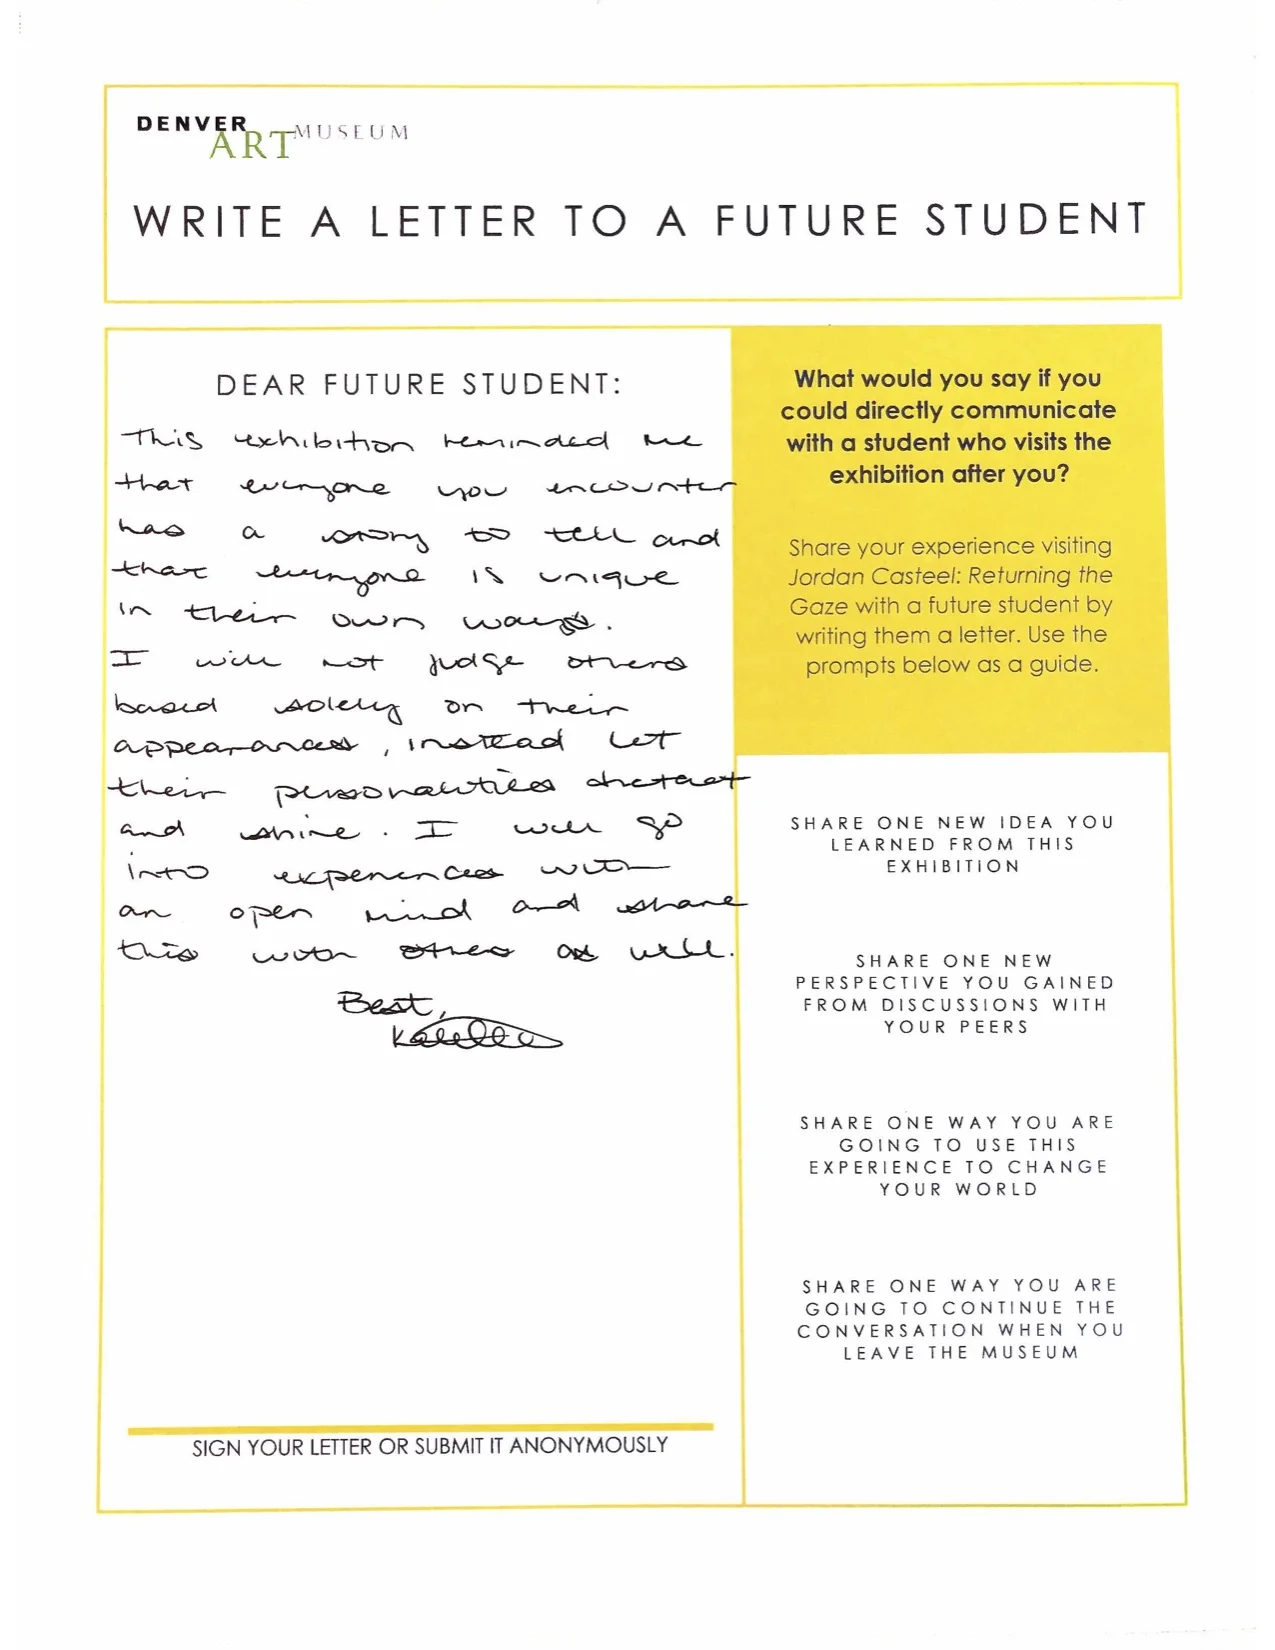 DENVER
ART MUSEUM
WRITE A LETTER TO A FUTURE STUDENT
DEAR FUTURE STUDENT:
This exhibition reminded me
that everyone you encounter
has a story to tell and
that everyone is unique
in their own ways.
I will not judge others
based solely on their
appearances, instead let
their personalities
and shine. I will go
into experiences with
an open mind and share
this with others as well.
Best,
What would you say if you
could directly communicate
with a student who visits the
exhibition after you?
Share your experience visiting
Jordan Casteel: Returning the
Gaze with a future student by
writing them a letter. Use the
prompts below as a guide.
SHARE ONE NEW IDEA YOU
LEARNED FROM THIS
EXHIBITION
SHARE ONE NEW
PERSPECTIVE YOU GAINED
FROM DISCUSSIONS WITH
YOUR PEERS
SHARE ONE WAY YOU ARE
GOING TO USE THIS
EXPERIENCE TO CHANGE
YOUR WORLD
SHARE ONE WAY YOU ARE
GOING TO CONTINUE THE
CONVERSATION WHEN YOU
LEAVE THE MUSEUM
SIGN YOUR LETTER OR SUBMIT IT ANONYMOUSLY